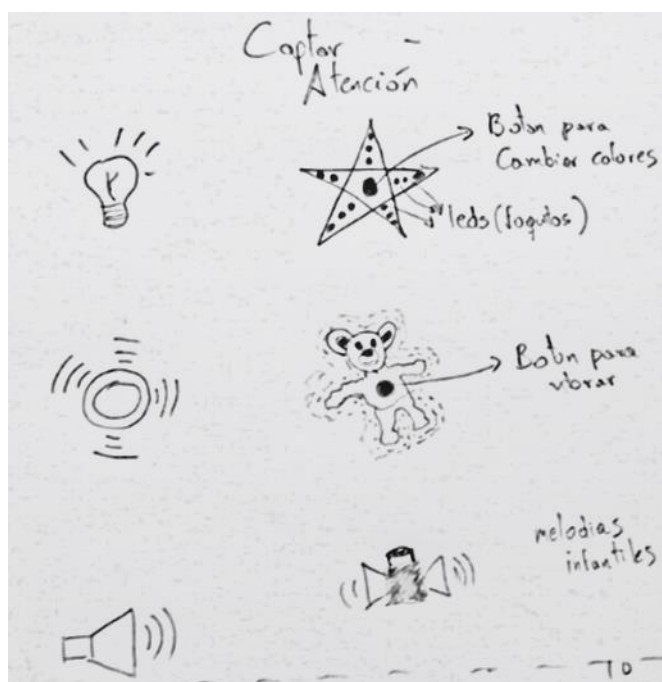 Captar
Atención
Boton para
Cambiar colores
leds (foquitos)
Boton para
vibrar
melodias
infantiles